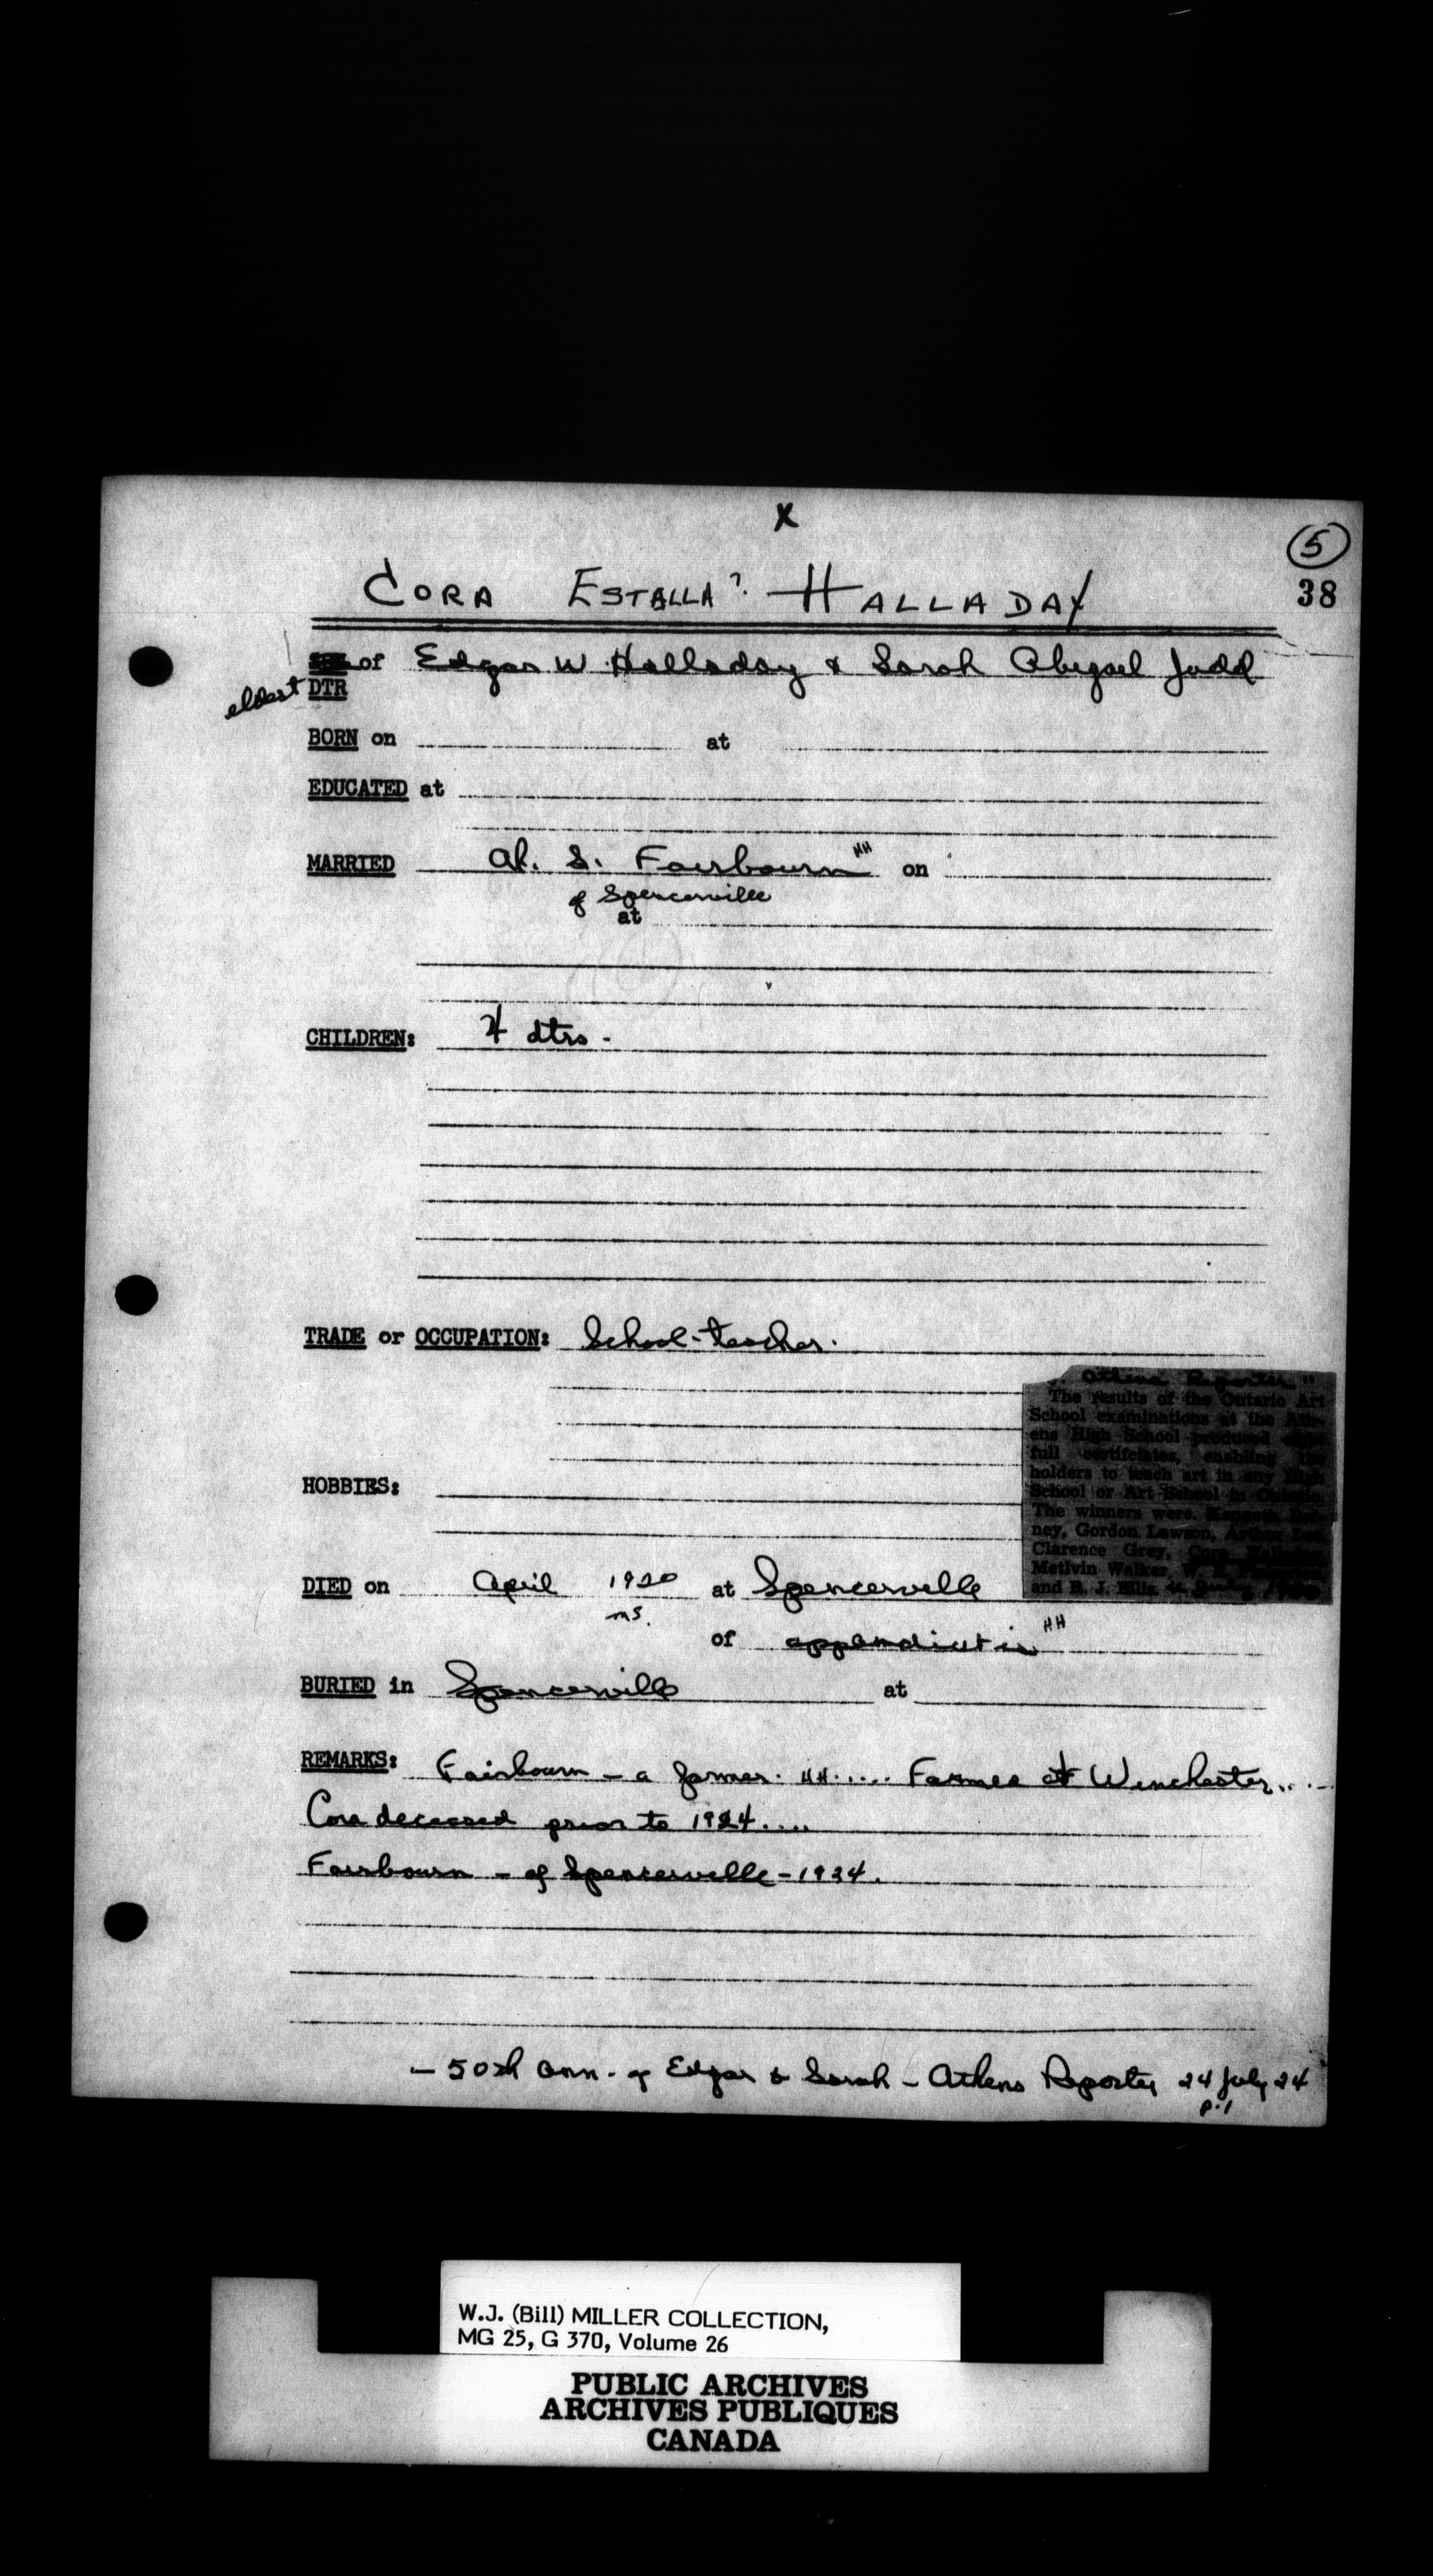 X
5
CORA ESTALLA? HALLADAY
38
of Edgar W Halladay & Sarah Abigail Judd
eldest DTR
BORN on at
EDUCATED at
MARRIED S. Fairbourn HH on
of Spencerville
at
CHILDREN: 4 dtrs -
TRADE or OCCUPATION: School-teacher.
Athens Reporter
The results of the Ontario Art
School examinations at the Ath-
ens High School produced
full certificates, enabling the
holders to teach art in any High
School or Art School in Ontario.
The winners were
ney, Gordon Lawson, Arthur Lee,
Clarence Grey, Cora Halladay,
Metlvin Walker,
and R. J. Ellis.
HOBBIES:
DIED on April 1920 at Spencerville
ms.
of appendicitis HH
BURIED in Spencerville at
REMARKS: Fairbourn - a farmer. HH..... Farmed at Winchester...
Cora deceased prior to 1924....
Fairbourn - of Spencerville - 1924.
- 50th ann. of Edgar & Sarah - Athens Reporter 24 July 24
p.1
W.J. (Bill) MILLER COLLECTION,
MG 25, G 370, Volume 26
PUBLIC ARCHIVES
ARCHIVES PUBLIQUES
CANADA